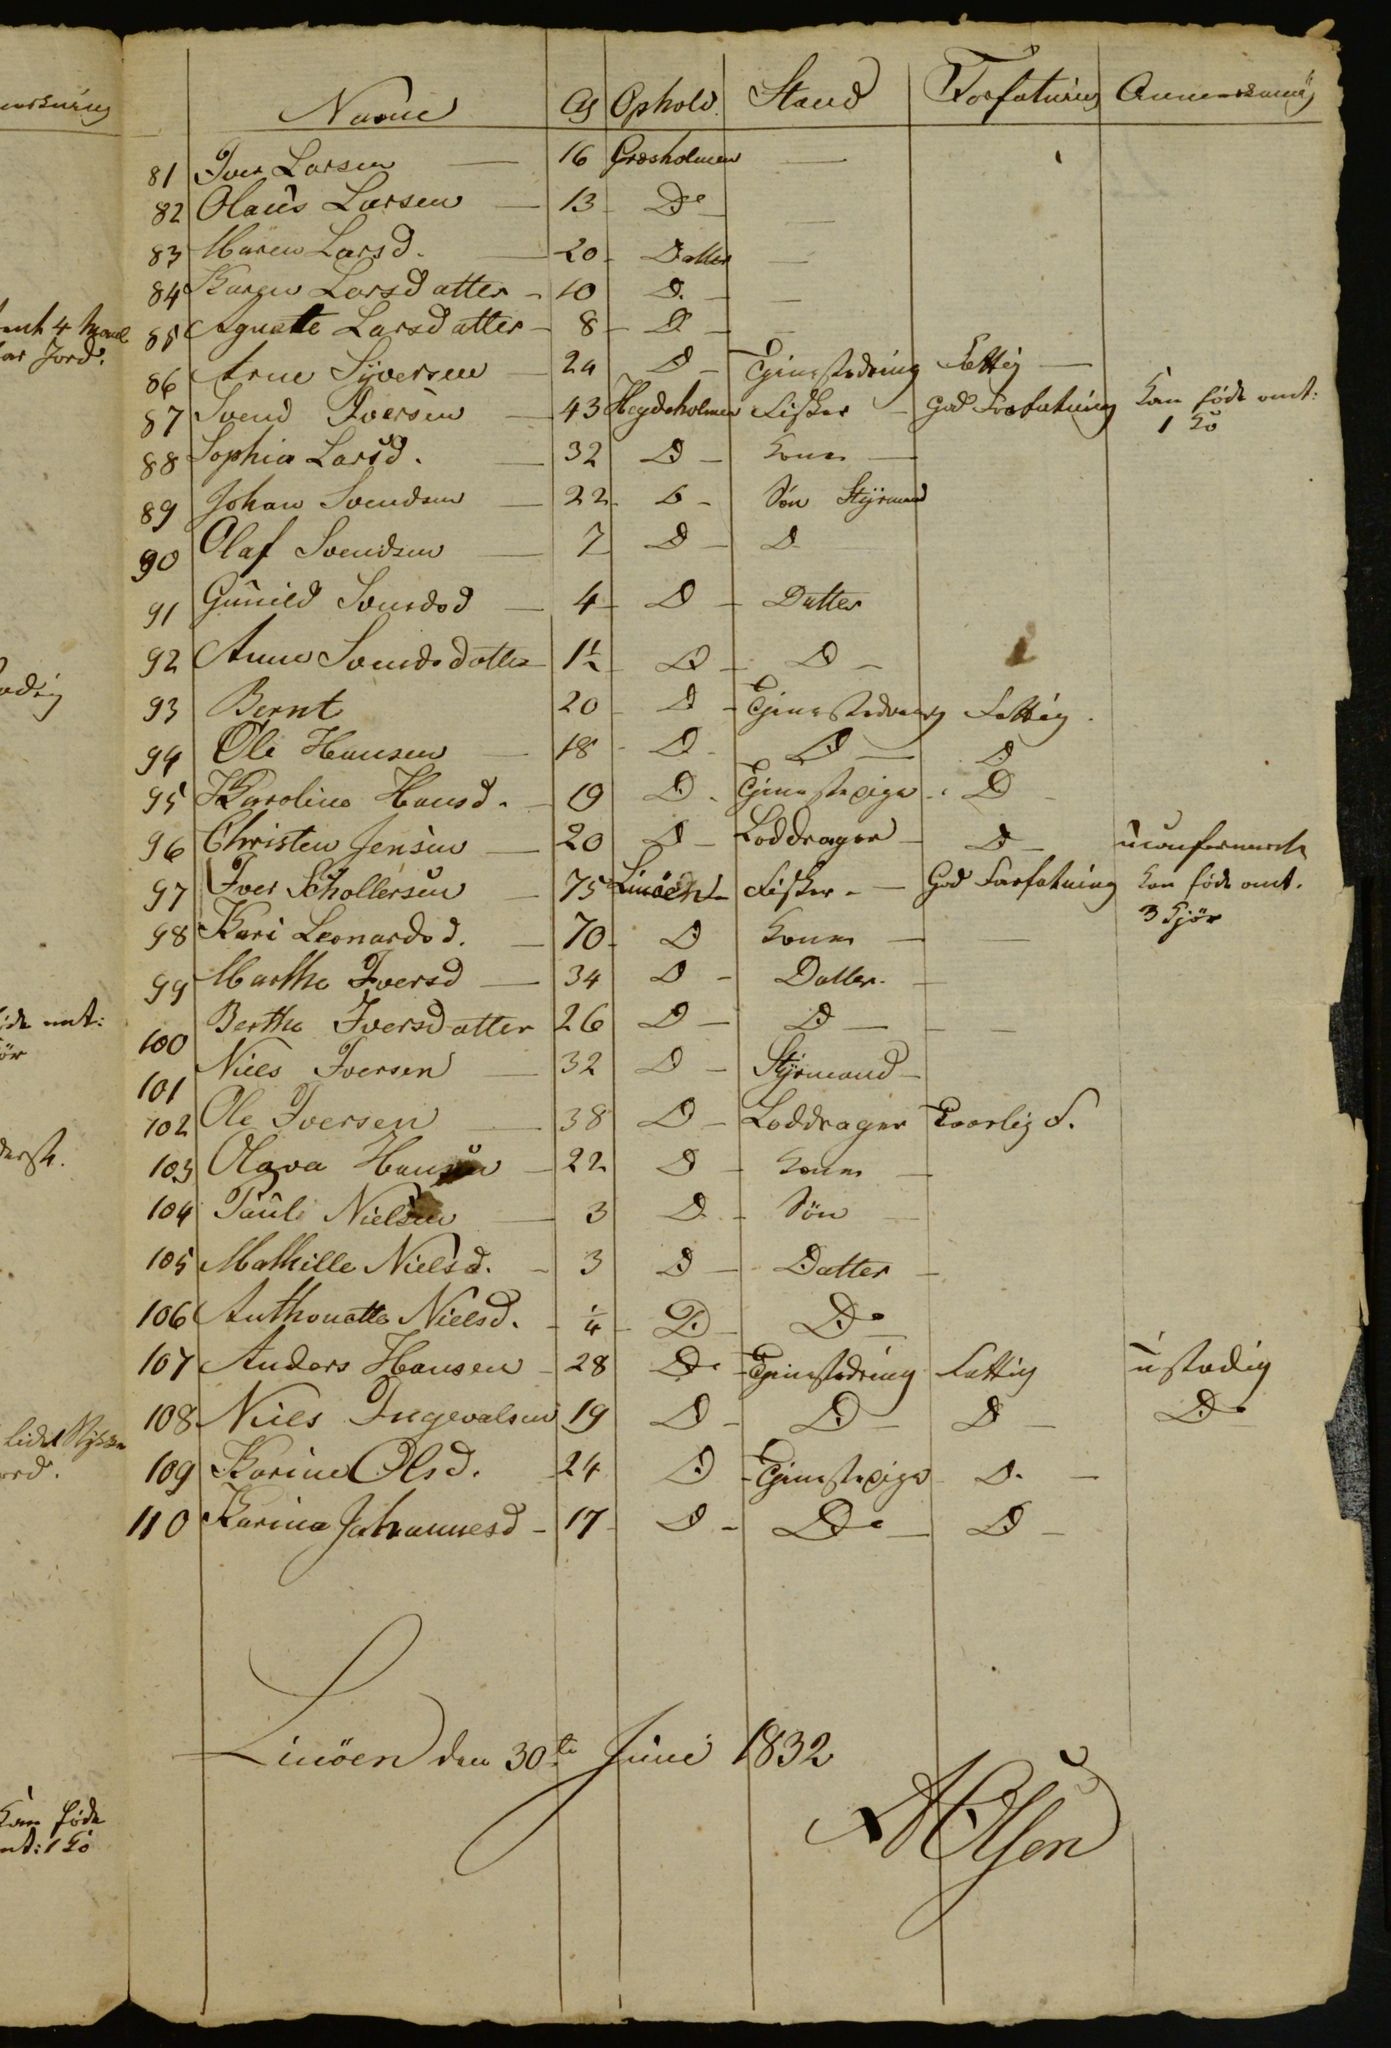 Navne Al Ophold. Stand Forfatning Anmerkning
81 Iver Larsen — 16 Græsholmen —
82 Olaus Larsen — 13 Do —
83 Maren Larsd. — 20 - Datter —
84 Karen Larsdatter - 10 D. - —
85 Agnette Larsdatter - 8 - D - —
86 Arne Syversen — 24 D - Tjenestedreng Fattig —
87 Svend Iversen — 43 Hegdeholmen Fisker - god Forfatning Kan föde omt:
1 Ko
88 Sophia Larsd. — 32 D - Kone —
89 Johan Svendsen — 22 - D - Sön Styrmand
90 Olaf Svendsen — 7 D - D
91 Gunild Svendsd — 4 - D - Datter
92 Anne Svendsdatter - 1½ - D - D -
93 Bernt 20 - D - Tjenestedreng Fattig.
94 Ole Hansen — 18 - D - D — D
95 Karoline Hansd. - 19 D. Tjenestepige - D -
96 Christen Jensen — 20 D - Loddrager — D - uconfirmerte
97 Iver Schollersen — 75 Linöen - Fisker. - — God Forfatning Kan föde omt.
3 Kjör
98 Kari Leonardsd. — 70 - D Kone — —
99 Marthe Iversd — 34 D - Datter. —
100 Berthe Iversdatter 26 D - D — - —
101 Niels Iversen — 32 D - Styrmand —
102 Ole Iversen — 38 D - Loddrager Taarlig F.
103 Olava Hansen - 22 D - Kone —
104 Paul Nielsen — 3 D - Sön —
105 Mathille Nielsd. - 3 D - Datter —
106 Anthonette Nielsd. - ¼ - D. - Do
107 Anders Hansen - 28 Do - Tjenestedreng Fattig ustadig
108 Niels Ingevalsen 19 D - D - D - Do
109 Karine Olsd. 24 D - Tjenestepige D. —
110 Karina Johannesd - 17 - D - Do — D -
Linöen den 30te Juni 1832
A Olsen
ent 4 Maal
ar Jord.
adig
öde omt:
ör
lidet
ord.
Kan föde
mt: 1 Ko